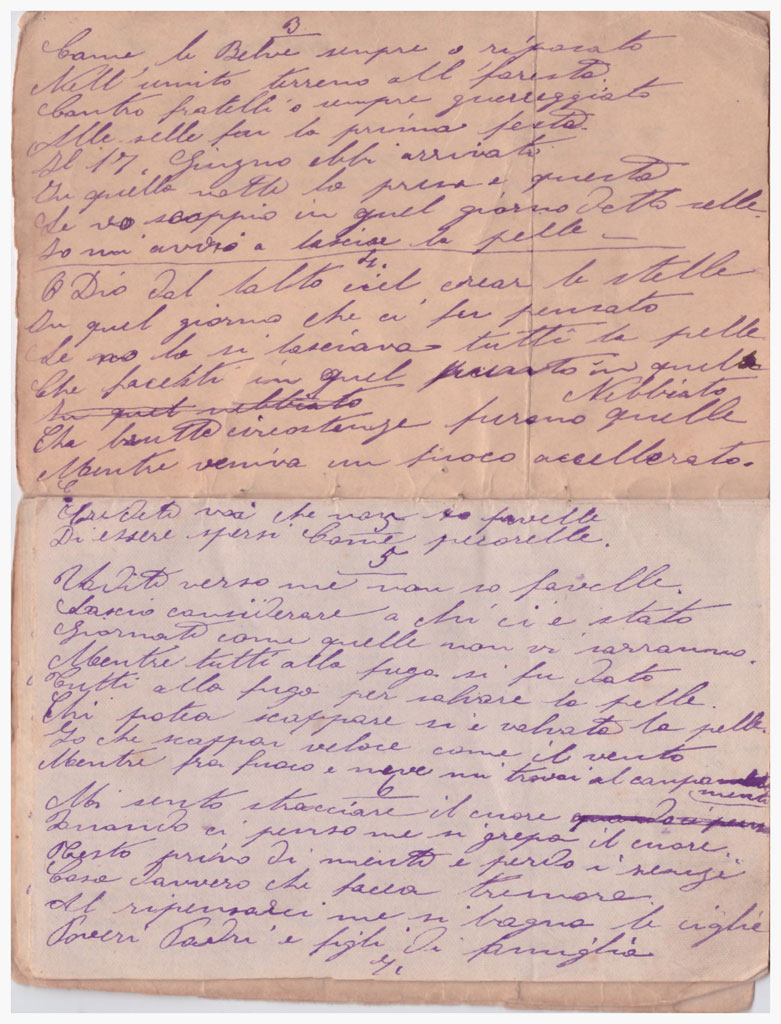 3
Come le Belve sempre o riposato
Nell'umito terreno all'foresta.
Contro fratelli o sempre guerreggiato
Alle selle fu la prima festa.
Al 17, Giugno ebbi arrivato
In quella notte la presa e questa
Se vo scappio in quel giorno detto selle
Io mi avviso a lasciar la pelle.
4.
O Dio dal lalto ciel crear le stelle
In quel giorno che ci fu pensato
Se no la si lasciava tutti la pelle
Che facesti in quel in quel
In quel nebbiato Nebbiato
Che brutte circostenze furono quelle
Mentre veniva un fuoco accellerato.
Credeti voi che non so favelle
Di essere spersi Come pecorelle.
5
Uditi verso me non so favelle.
Lascio considerare a chi ci e stato
Giornate come quelle non vi sarranno.
Mentre tutti alla fuga si fu dato
Tutti alla fuga per salvare la pelle.
Chi potea scappare si e salvata la pelle.
Io che scappai veloce come il vento
Mentre fra fuoco e neve mi trovai al campamenti
6
Mi sento stracciare il cuore quando ci penso
Quando ci penso me si grepa il cuore
Resto privo di menti e perdo i sensi
Cosa davvero che facea tremore
Al ripensarci me si bagna le ciglie
Poveri Padri e figli di famiglia
7.